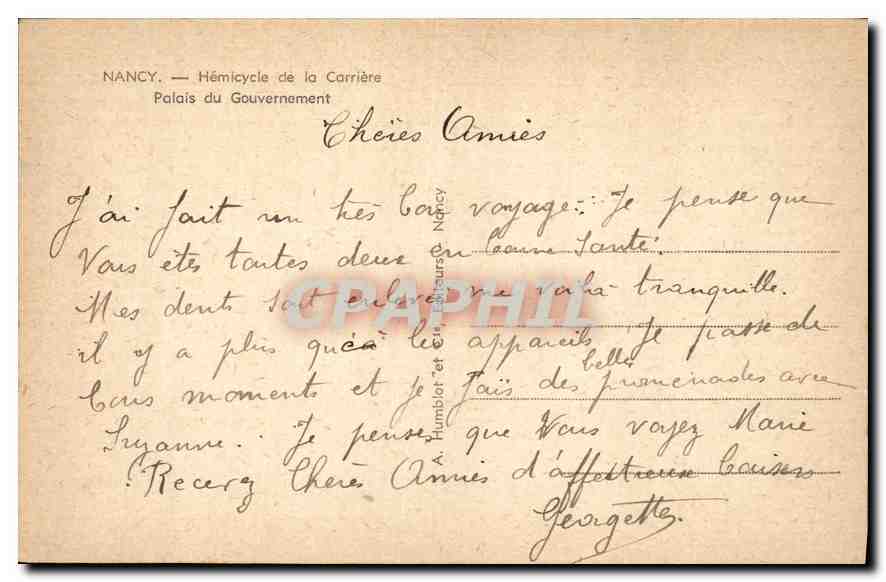 NANCY. — Hémicycle de la Carrière
Palais du Gouvernement
Chères Amies
J'ai fait un très bon voyage. Je pense que
Vous êtes toutes deux en bonne santé.
Mes dents sont enlevé me voilà tranquille.
il y a plus qu'ca les appareils, Je passe de
bons moments et je fais des belles promenades avec
Suzanne. Je penses que Vous voyez Marie
Recevez Chères Amies d'affectueux baisers
Georgette.
A. Humblot et Cie, Editeurs, Nancy
CPAPHIL